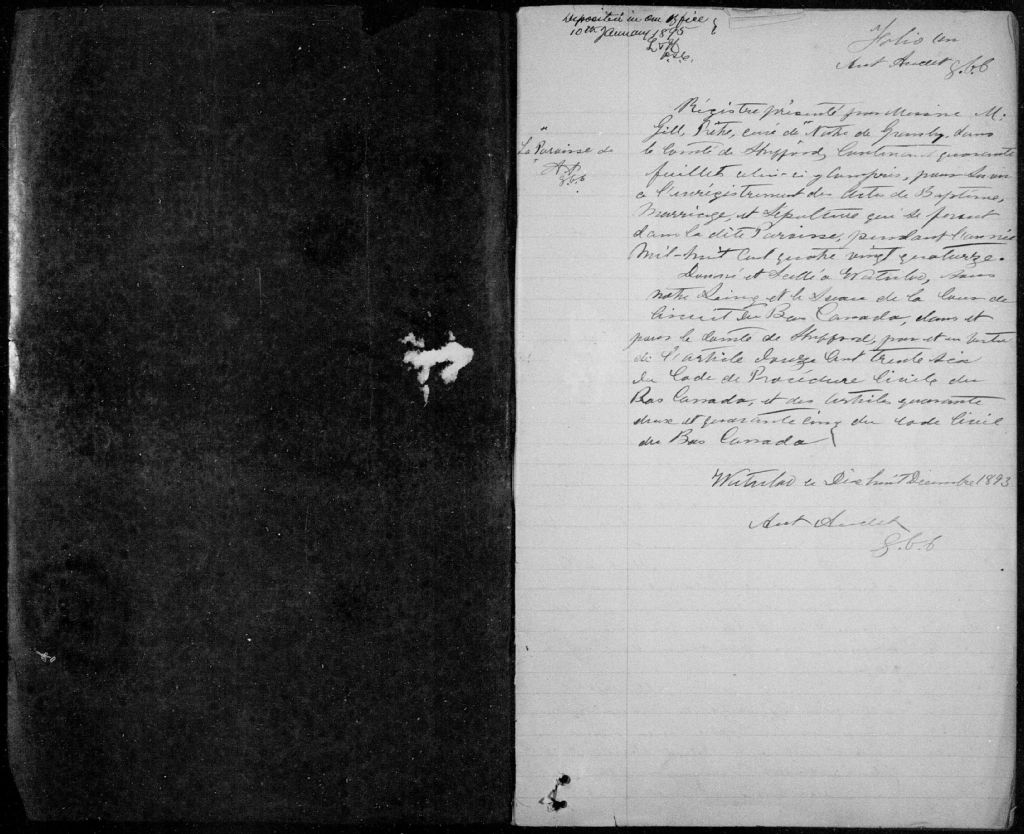 Deposited in our office
10th January 1895
p.s.c.
Folio un
Ant Audet
g.c.c
"La Paroisse de
A.A.
g.c.c
Régistre présenté par Messire M.
Gill, Prêtre, curé de " Notre de Granby, dans
le Comté de Shefford, Contenant quarante
feuillets celui-ci y compris, pour servir
à l'enrégistrement des Actes de Baptême,
Marriage, et Sépulture qui se feront
dans la dite Paroisse, pendant l'année
Mil-huit Cent quatre vingt quatorze.
Donné et Scellé à Waterloo, sous
notre Seing et le Sceau de la Cour de
Circuit du Bas Canada, dans et
pour le Comté de Shefford, par et en vertu
de l'article Douze Cent trente six
du Code de Procédure Civile du
Bas Canada, et des Articles quarante
deux et quarante cinq du Code Civil
du Bas Canada
Waterloo ce Dix huit Décembre 1893
Ant Audet
g.c.c